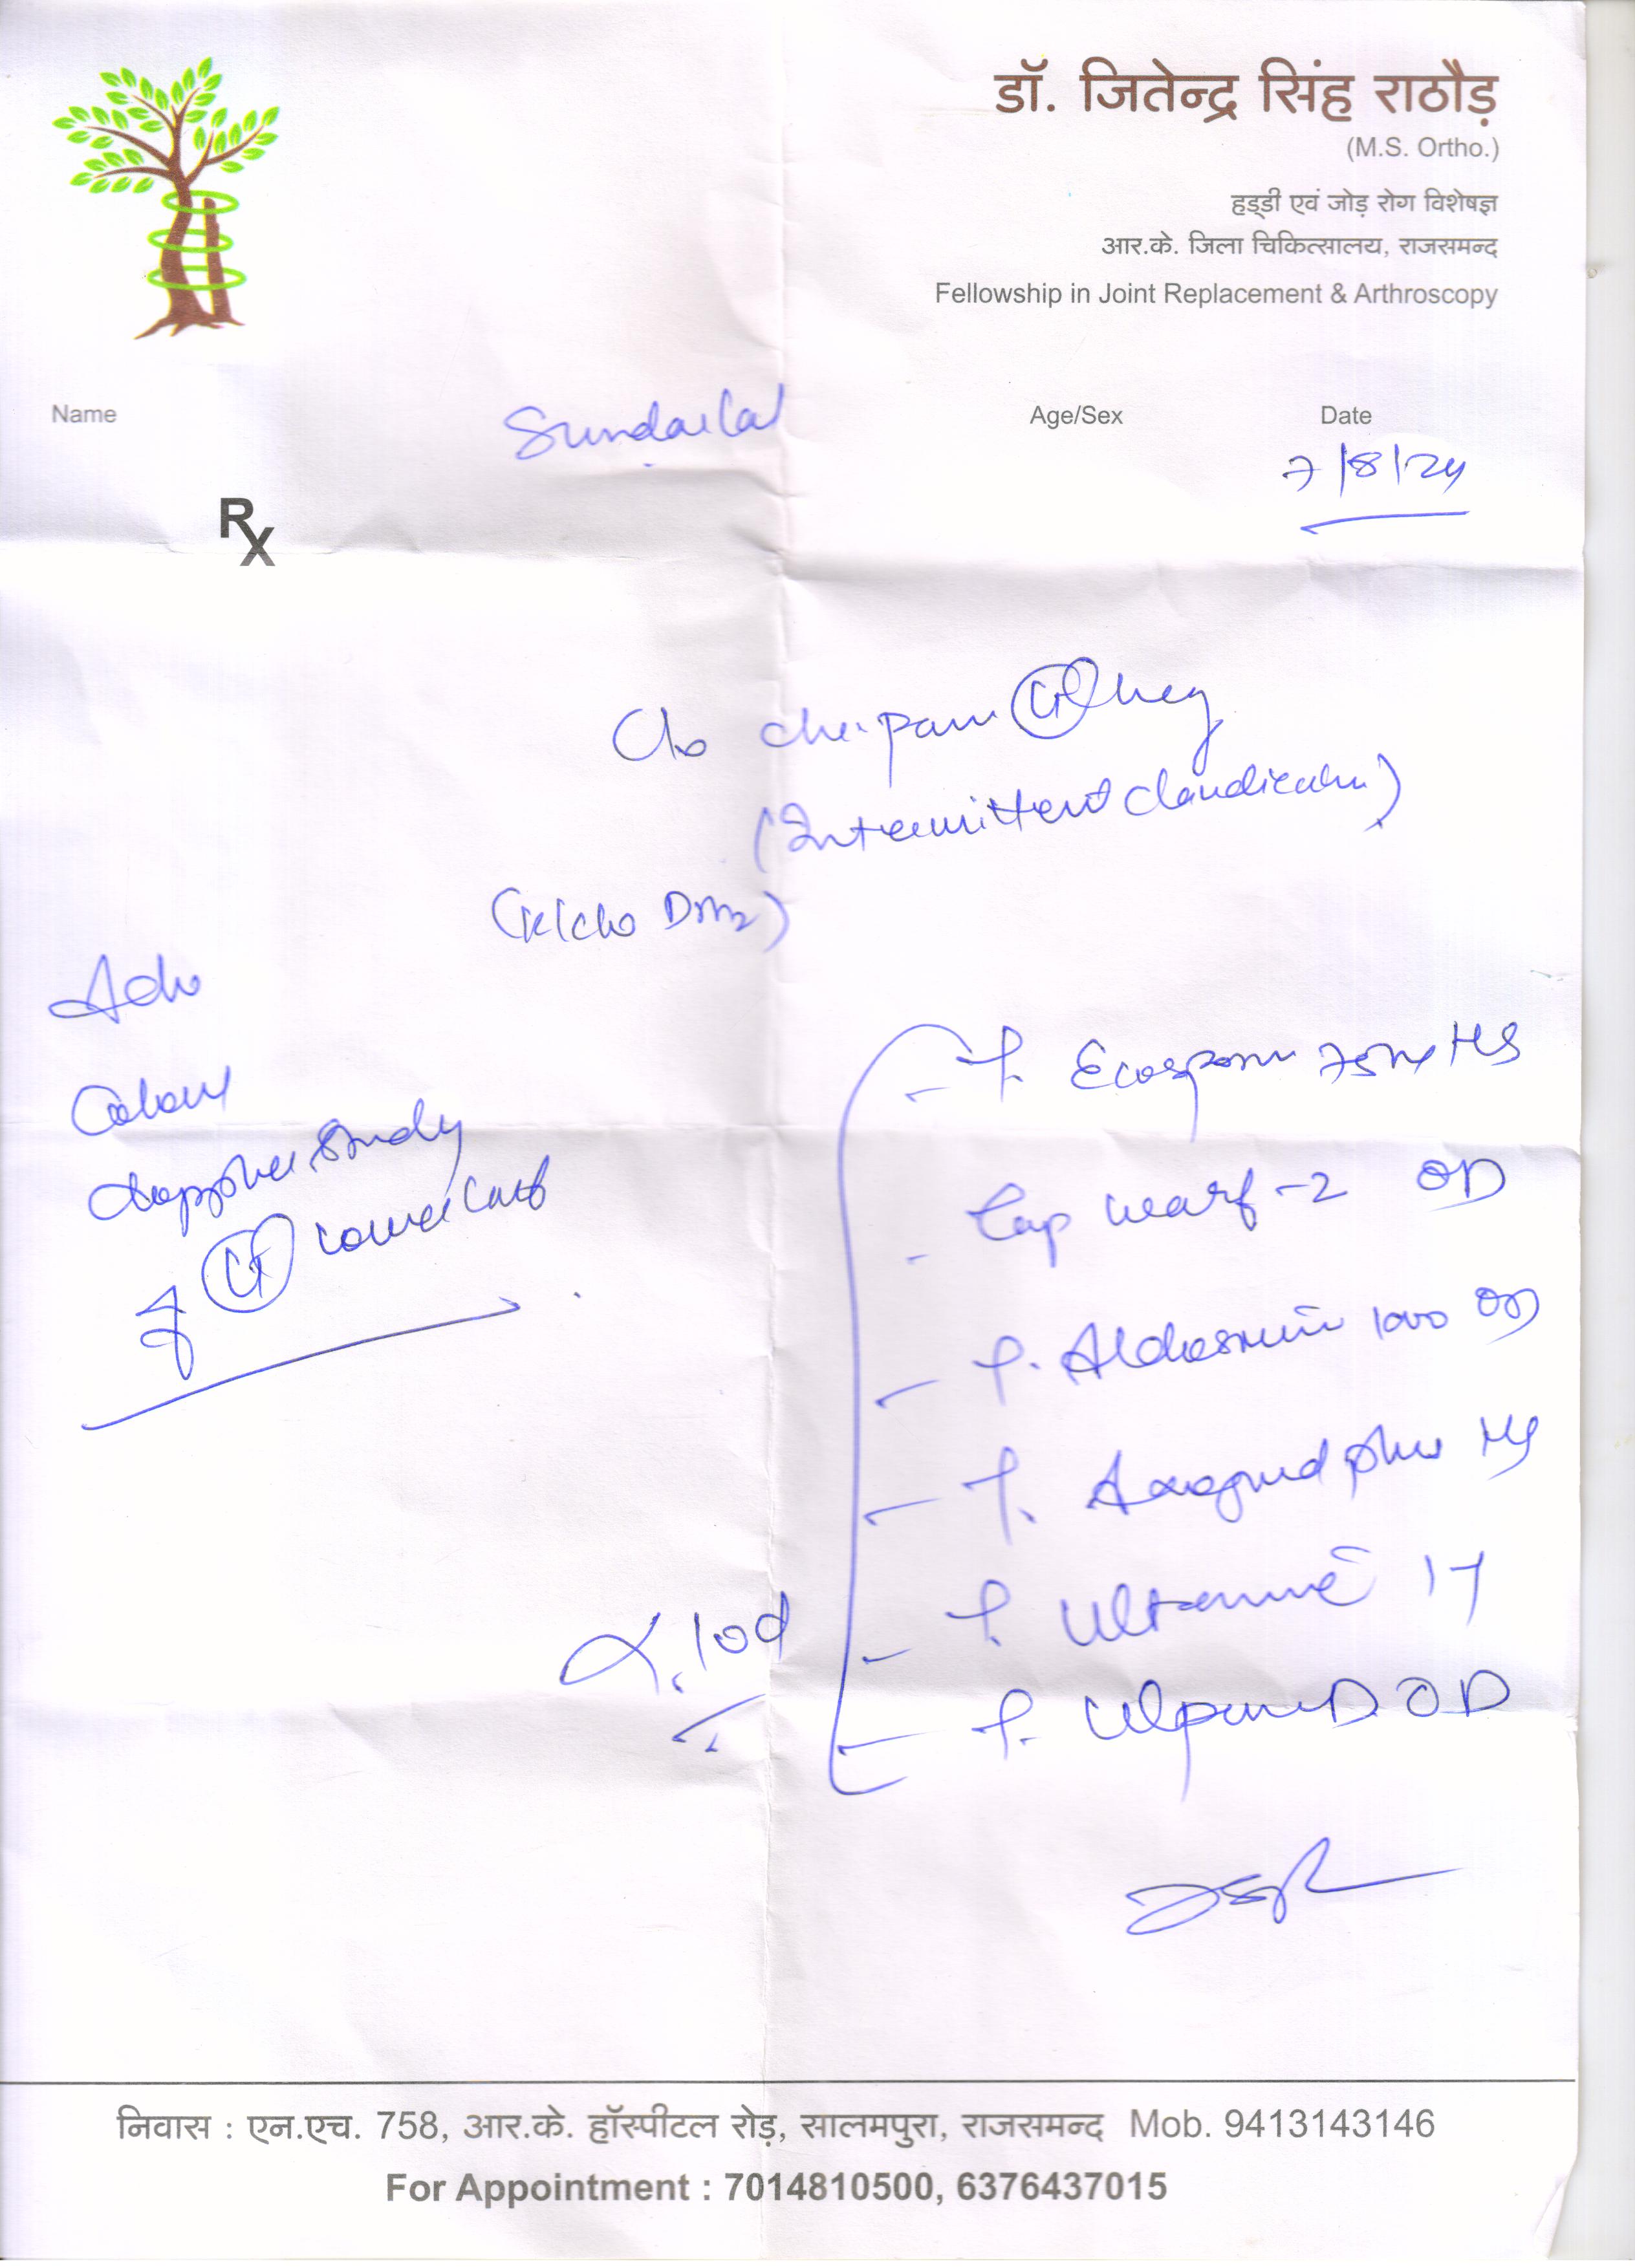 डॉ. जितेन्द्र सिंह राठौड़
(M.S. Ortho.)
हड्डी एवं जोड़ रोग विशेषज्ञ
आर.के. जिला चिकित्सालय, राजसमन्द
Fellowship in Joint Replacement & Arthroscopy
Name Sundarlal Age/Sex Date
7/8/24
Rx
C/o pain Lt leg
(Intermittent Claudication)
(K/c/o DM2)
Adv
Colour
doppler study
of Lt lower limb
- T. Ecosprin 75mg HS
- Cap warf-2 OD
- T. 1000 OD
- T. plus HS
- T. 1-1
- T. D OD
x 10d
निवास : एन.एच. 758, आर.के. हॉस्पीटल रोड़, सालमपुरा, राजसमन्द Mob. 9413143146
For Appointment : 7014810500, 6376437015